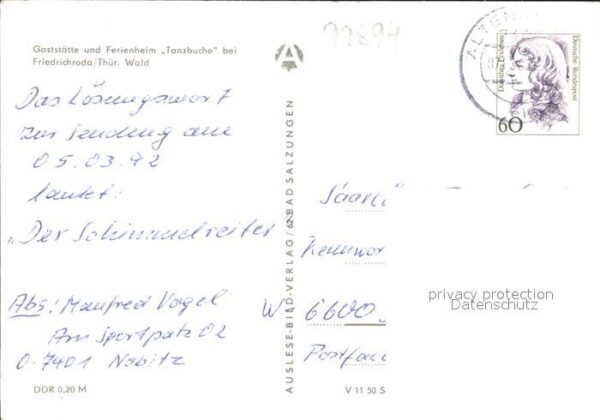 99894
Gaststätte und Ferienheim „Tanzbuche" bei
Friedrichroda/Thür. Wald
ALTEN
Deutsche Bundespost
60
Das Lösungswort
zur Sendung am
05.03.92
lautet:
„Der Schimmelreiter"
Abs: Manfred Vogel
Am Sportplatz 02
O-7401 Nobitz
DDR 0,20 M
AUSLESE-BILD-VERLAG/62 BAD SALZUNGEN
Saarlä
Kennwor
W- 6600
Postfac
V 11 50 S
privacy protection
Datenschutz